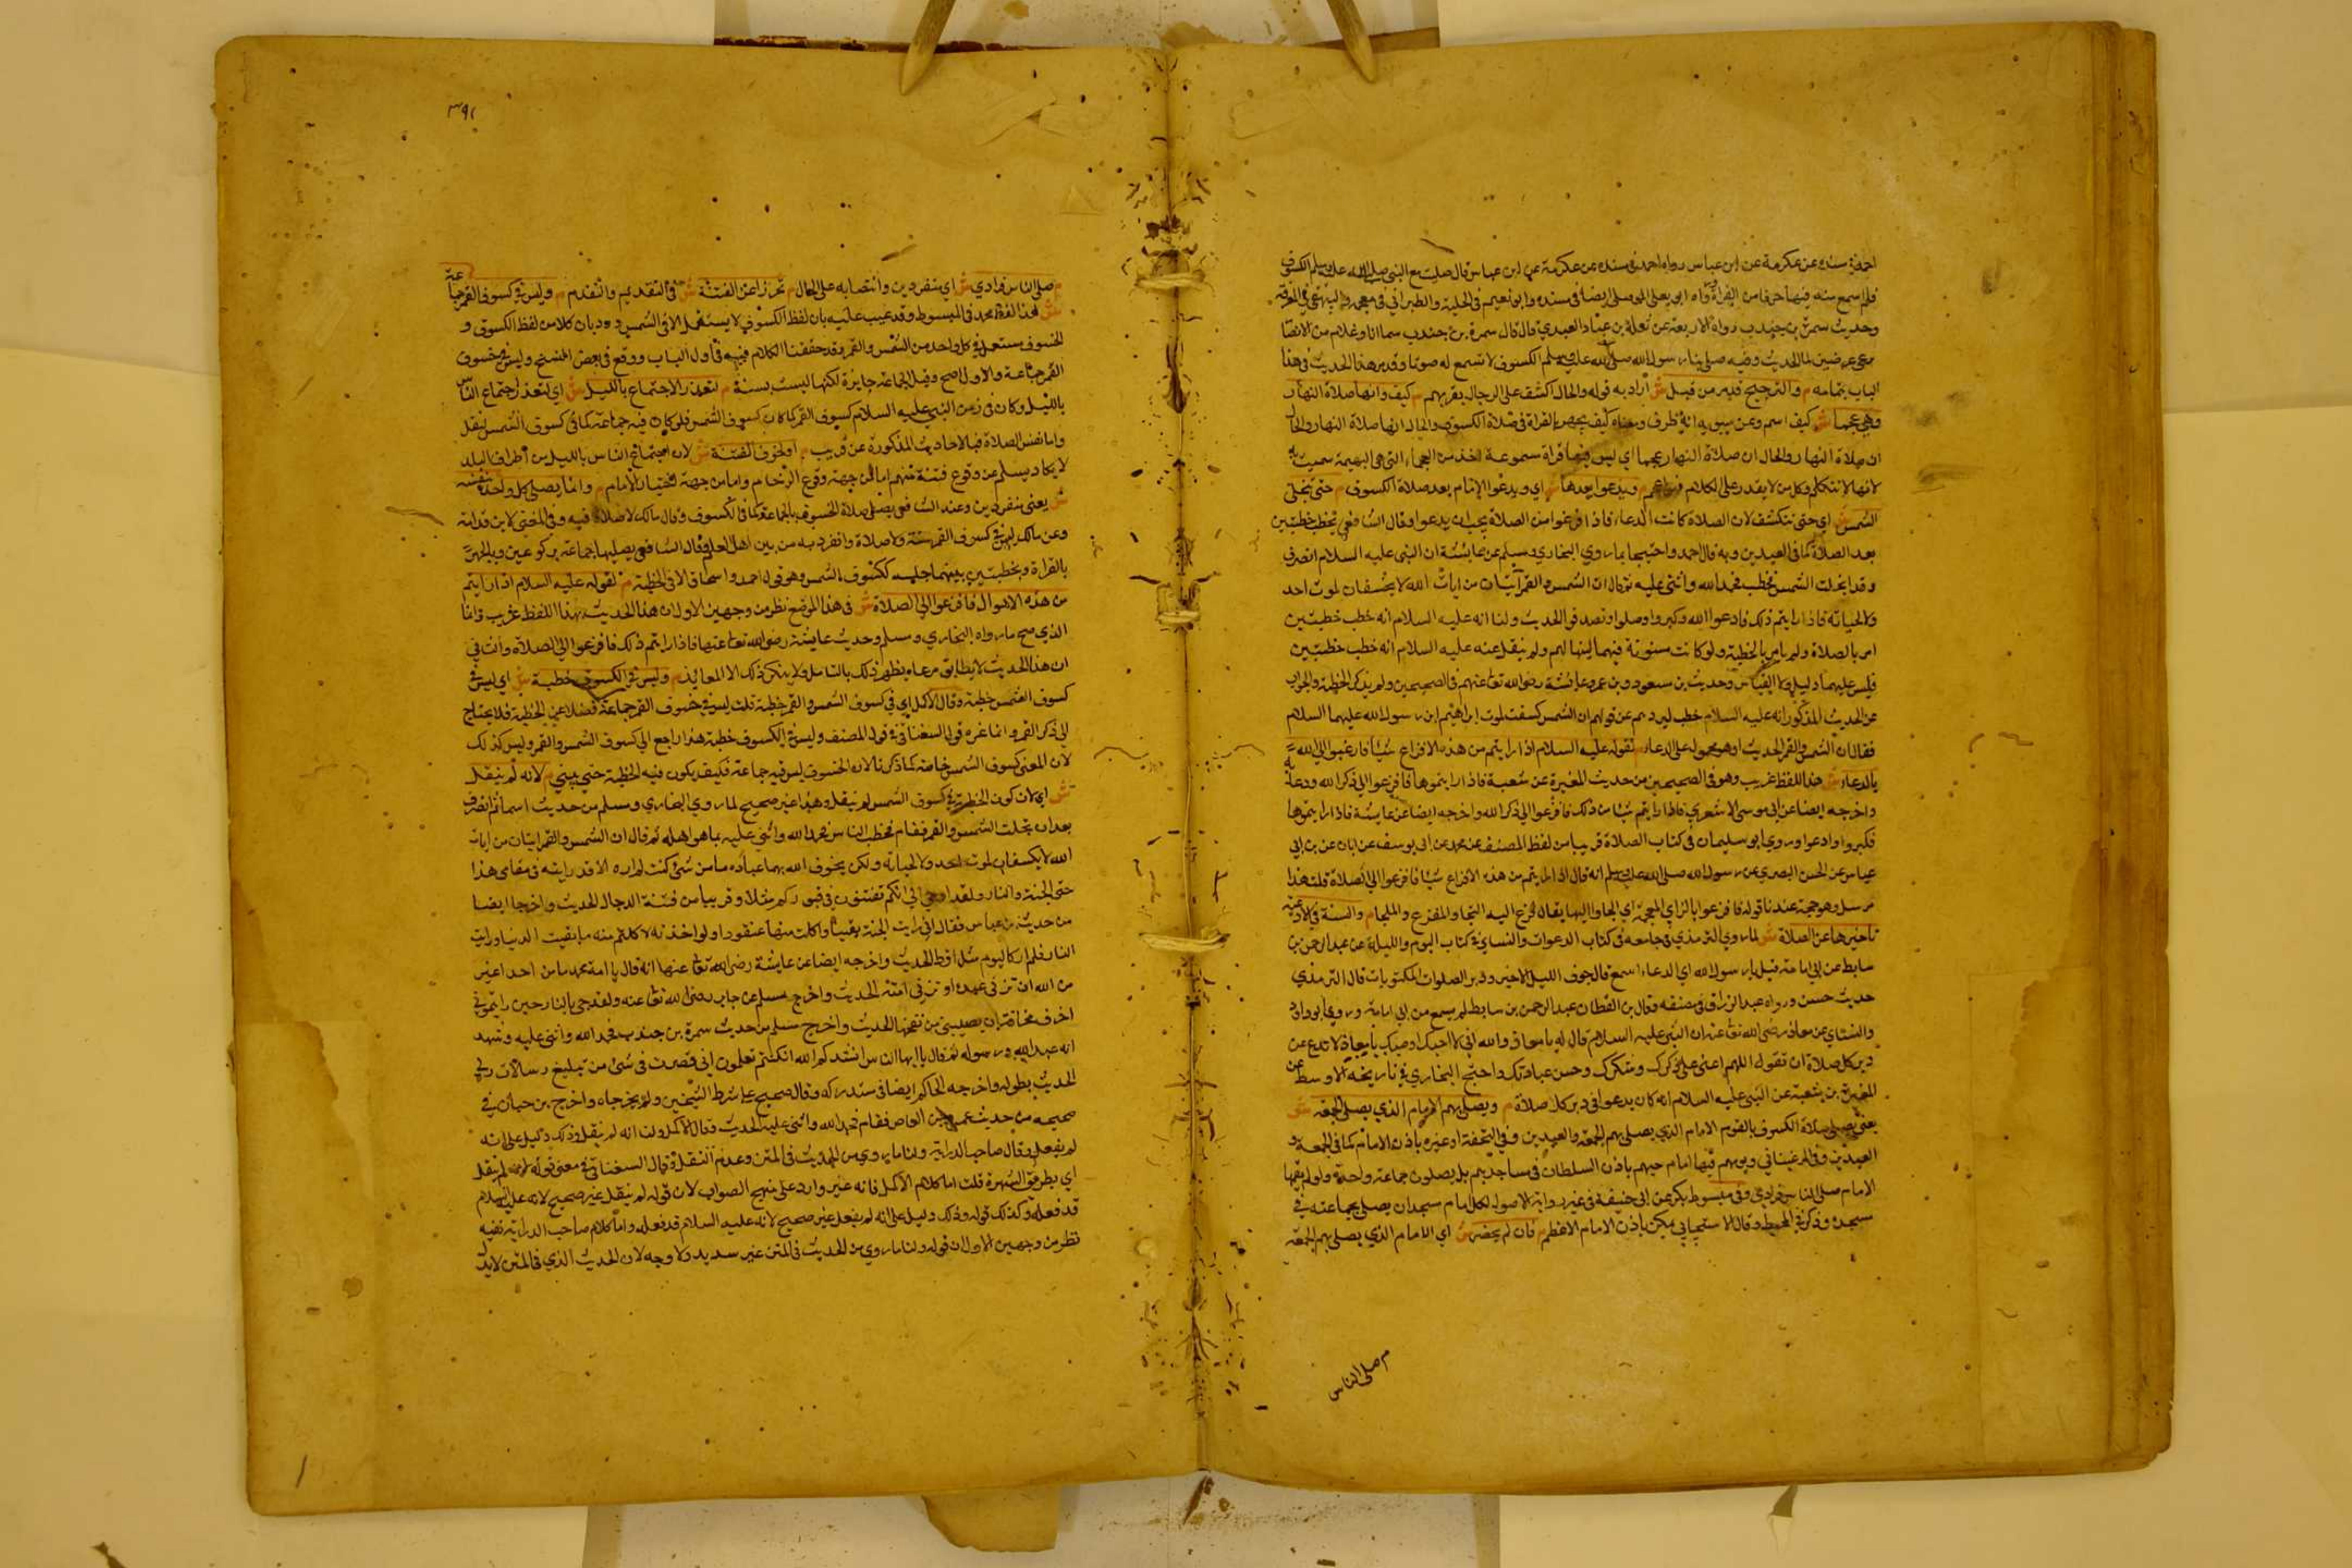 احمد في مسنده عن عكرمة عن ابن عباس رواه احمد في مسنده عن عكرمة عن ابن عباس قال صليت مع النبي صلى الله عليه وسلم الكسوف
فلم اسمع منه فيها حرفا من القراة رواه ابو يعلى الموصلي ايضا في مسنده وابو نعيم في الحلية والطبراني في معجمه والبيهقي في المعرفة
وحديث سمرة بن جندب رواه الاربعة عن ثعلبة بن عباد العبدي قال قال سمرة بن جندب بينما انا وغلام من الانصا
الحديث وفيه صلى بنا رسول الله صلى الله عليه وسلم الكسوف لا نسمع له صوتا وقد مر هذا الحديث في هذا
الباب بتمامه م والترجيح قد مر من قبل ش أراد به قوله والحال اكشف على الرجال لقربهم م كيف وانها صلاة النهار
وهي عجما ش كيف اسم وعن سيبويه انه ظرف ومعناه كيف يجهر بالقراة في صلاة الكسوف والحال انها صلاة النهار والحال
ان صلاة النهار عجما اي ليس فيها قراة مسموعة اخذ من العجماء التي هي البهيمة سميت به
لانها لا تتكلم وكل من لا يقدر على الكلام فهو اعجم م ويدعو بعدها ش اي ويدعو الامام بعد صلاة الكسوف م حتى تنجلي
الشمس ش اي حتى تنكشف لان الصلاة كانت الدعاء فاذا فرغوا من الصلاة يجب ان يدعوا وقال الشافعي يخطب خطبتين
بعد الصلاة كما في العيدين وبه قال احمد واحتجا بما روي البخاري ومسلم عن عائشة ان النبي عليه السلام انصرف
وقد انجلت الشمس فخطب فحمد الله واثنى عليه ثم قال ان الشمس والقمر آيتان من ايات الله لا يخسفان لموت احد
ولا لحياته فاذا رايتم ذلك فادعوا الله وكبروا وصلوا وتصدقوا الحديث ولنا انه عليه السلام
امر بالصلاة ولم يامر بالخطبة ولو كانت مسنونة فيهما لبينها لهم ولم ينقل عنه عليه السلام انه خطب خطبتين
فليس عليهما دليل ولا القياس وحديث بن مسعود وبن عمر وعائشة رضي الله تعا عنهم في الصحيحين ولم يذكر الخطبة والجواب
عن الحديث المذكور انه عليه السلام خطب ليردهم عن قولهم ان الشمس كسفت لموت ابراهيم ابن رسول الله عليهما السلام
فقال ان الشمس والقمر الحديث او هو محمول على الدعاء م لقوله عليه السلام اذا رايتم من هذه الافزاع شيا فارغبوا الى الله
بالدعاء ش هذا اللفظ غريب وهو في الصحيحين من حديث المغيرة عن شعبة فاذا رايتموها فافزعوا الي ذكر الله ودعائه
واخرجه ايضا عن ابي موسى الاشعري فاذا رايتم شيا من ذلك فافزعوا الي ذكر الله واخرجه ايضا عن عايشة فاذا رايتموها
فكبروا وادعوا وروي ابو سليمان في كتاب الصلاة قريبا من لفظ المصنف عن محمد عن ابي يوسف عن ابان عن بن ابي
عياش عن الحسن البصري عن رسول الله صلى الله عليه وسلم انه قال اذا رايتم من هذه الافزاع شيا فافزعوا الي الصلاة قلت هذا
مرسل وهو حجة عندنا قوله فافزعوا بالزاي المعجمة اي الجاوا اليها يقال فزع اليه التجا والمفزع والملجا م والسنة في الادعية
تاخيرها عن الصلاة ش لما روي الترمذي في جامعه في كتاب الدعوات والنساي في كتاب اليوم والليلة عن عبد الرحمن بن
سابط عن ابي امامة قيل يا رسول الله اي الدعاء اسمع قال جوف الليل الاخير ودبر الصلوات المكتوبات قال الترمذي
حديث حسن ورواه عبد الرزاق في مصنفه وقال بن القطان عبد الرحمن بن سابط لم يسمع من ابي امامة وروي ابو داود
والنساي عن معاذ رضي الله تعا عنه ان النبي عليه السلام قال له يا معاذ والله اني لاحبك اوصيك يا معاذ لا تدع عن
دبر كل صلاة ان تقول اللهم اعني على ذكرك وشكرك وحسن عبادتك واحتج البخاري في تاريخه الاوسط عن
المغيرة بن شعبة عن النبي عليه السلام انه كان يدعوا في دبر كل صلاة م ويصلي بهم الامام الذي يصلي الجمعة ش
يعني يصلي صلاة الكسوف بالقوم الامام الذي يصلي بهم الجمعة والعيدين وفي التحفة او غيره باذن الامام كما في الجمعة و
العيدين وفي المرغيناني ويومهم فيها امام حيهم باذن السلطان في مساجدهم بل يصلون جماعة واحدة ولو لم يقمها
الامام صلى الناس فرادي وفي مبسوط بكر عن ابي حنيفة في غير رواية الاصول لكل امام مسجد ان يصلي بجماعة في
مسجده وذكر في المحيط وقال الاسبيجابي لكن باذن الامام الاعظم م فان لم يحضر ش اي الامام الذي يصلي بهم الجمعة
م صلى الناس
٣٩١
م صلى الناس فرادي ش اي منفردين وانتصابه على الحال م تحرزا عن الفتنة ش في التقديم والتقدم م وليس في كسوف القمر جماعة
ش هذا لفظ محمد في المبسوط وقد عيب عليه بان لفظ الكسوف لا يستعمل الا في الشمس ورد بان كلا من لفظ الكسوف و
الخسوف يستعمل في كل واحد من الشمس والقمر وقد حققنا الكلام فيه في أول الباب ووقع في بعض النسخ وليس في خسوف
القمر جماعة والاول اصح وقيل الجماعة جايزة لكنها ليست بسنة م لتعذر الاجتماع بالليل ش اي لتعذر اجتماع الناس
بالليل وكان في زمن النبي عليه السلام كسوف القمر كما كان كسوف الشمس فلو كان فيه جماعة كما في كسوف الشمس لنقل
واما نفس الصلاة فبالاحاديث المذكورة عن قريب م او لخوف الفتنة ش لان اجتماع الناس بالليل من أطراف البلد
لا يكاد يسلم عن وقوع فتنة منهم اما من جهة وقوع الزحام واما من جهة م وانما يصلي كل واحد بنفسه
ش يعني منفردين وعند الشافعي يصلي صلاة الخسوف بالجماعة كما في الكسوف وقال مالك لا صلاة فيه وفي المغني لابن قدامة
وعن مالك ليس في كسوف القمر سنة ولا صلاة وانفرد به من بين اهل العلم وقال الشافعي يصليها جماعة بركوعين وبالجهر
بالقراة وبخطبتين بينهما جلسة ككسوف الشمس وهو قول احمد واسحاق الا في الخطبة م لقوله عليه السلام اذا رايتم
من هذه الاهوال فافزعوا الي الصلاة ش في هذا الموضع نظر من وجهين الاول ان هذا الحديث بهذا اللفظ غريب وانما
الذي صح ما رواه البخاري ومسلم وحديث عايشة رضي الله تعا عنها فاذا رايتم ذلك فافزعوا الي الصلاة والثاني
ان هذا الحديث لا يطابق مدعاه يظهر ذلك بالتامل ولا ينكر ذلك الا المعاند م وليس في الكسوف خطبة ش اي ليس في
كسوف الشمس خطبة وقال الاكمل اي في كسوف الشمس والقمر خطبة قلت ليس في خسوف القمر جماعة فضلا عن الخطبة فلا يحتاج
الي ذكر القمر وانما غره قول السغناقي في قول المصنف وليس في الكسوف خطبة هذا راجع الي كسوف الشمس والقمر وليس كذلك
لان المعنى كسوف الشمس خاصة كما ذكرنا لان الخسوف ليس فيه جماعة فكيف يكون فيه الخطبة حتى ينفي م لانه لم ينقل
ش اي لان كون الخطبة في كسوف الشمس لم ينقل وهذا غير صحيح لما روي البخاري ومسلم من حديث اسماء ثم انصرف
بعد ان تجلت الشمس والقمر فقام فخطب الناس فحمد الله واثنى عليه بما هو اهله ثم قال ان الشمس والقمر ايتان من ايات
الله لا يكسفان لموت احد ولا لحياته ولكن يخوف الله بهما عباده ما من شئ كنت لم اره الا قد رايته في مقامي هذا
حتى الجنة والنار ولقد اوحي الي انكم تفتنون في قبوركم مثلا او قريبا من فتنة الدجال الحديث واخرجا ايضا
من حديث بن عباس فقال اني رايت الجنة واكلت منها عنقودا ولو اخذته لاكلتم منه ما بقيت الدنيا ورايت
النار فلم ار كاليوم مثل اقط الحديث واخرجه ايضا عن عايشة رضي الله تعا عنها انه قال يا امة محمد ما من احد اغير
من الله ان تزني عبده او تزني امته الحديث واخرج مسلم عن جابر رضي الله تعا عنه ولقد جي بالنار حين رايتموني
اخرت مخافة ان يصيبني من نفحها الحديث واخرج مسلم من حديث سمرة بن جندب فحمد الله واثنى عليه وشهد
انه عبد الله ورسوله ثم قال يا ايها الناس انشدكم الله ان كنتم تعلمون اني قصرت في شئ من تبليغ رسالات ربي
الحديث بطوله واخرجه الحاكم ايضا في مستدركه وقال صحيح على شرط الشيخين ولم يخرجاه واخرج بن حبان في
صحيحه من حديث عمرو بن العاص فقام فحمد الله واثنى عليه الحديث وقال الاكمل ولنا انه لم ينقل وذلك دليل على انه
لم يفعل وقال صاحب الدراية ولنا ما روي من الحديث في المتن وعدم النقل قال السغناقي في معنى قوله لانه لم ينقل
اي بطريق الشهرة قلت اما كلام الاكمل فانه غير وارد على منهج الصواب لان قوله لم ينقل غير صحيح لانه عليه السلام
قد فعله وكذلك قوله وذلك دليل على انه لم يفعل غير صحيح لانه عليه السلام قد فعله واما كلام صاحب الدراية ففيه
نظر من وجهين الاول ان قوله ولنا ما روي من الحديث في المتن غير سديد ولا وجه لان الحديث الذي في المتن لا يدل